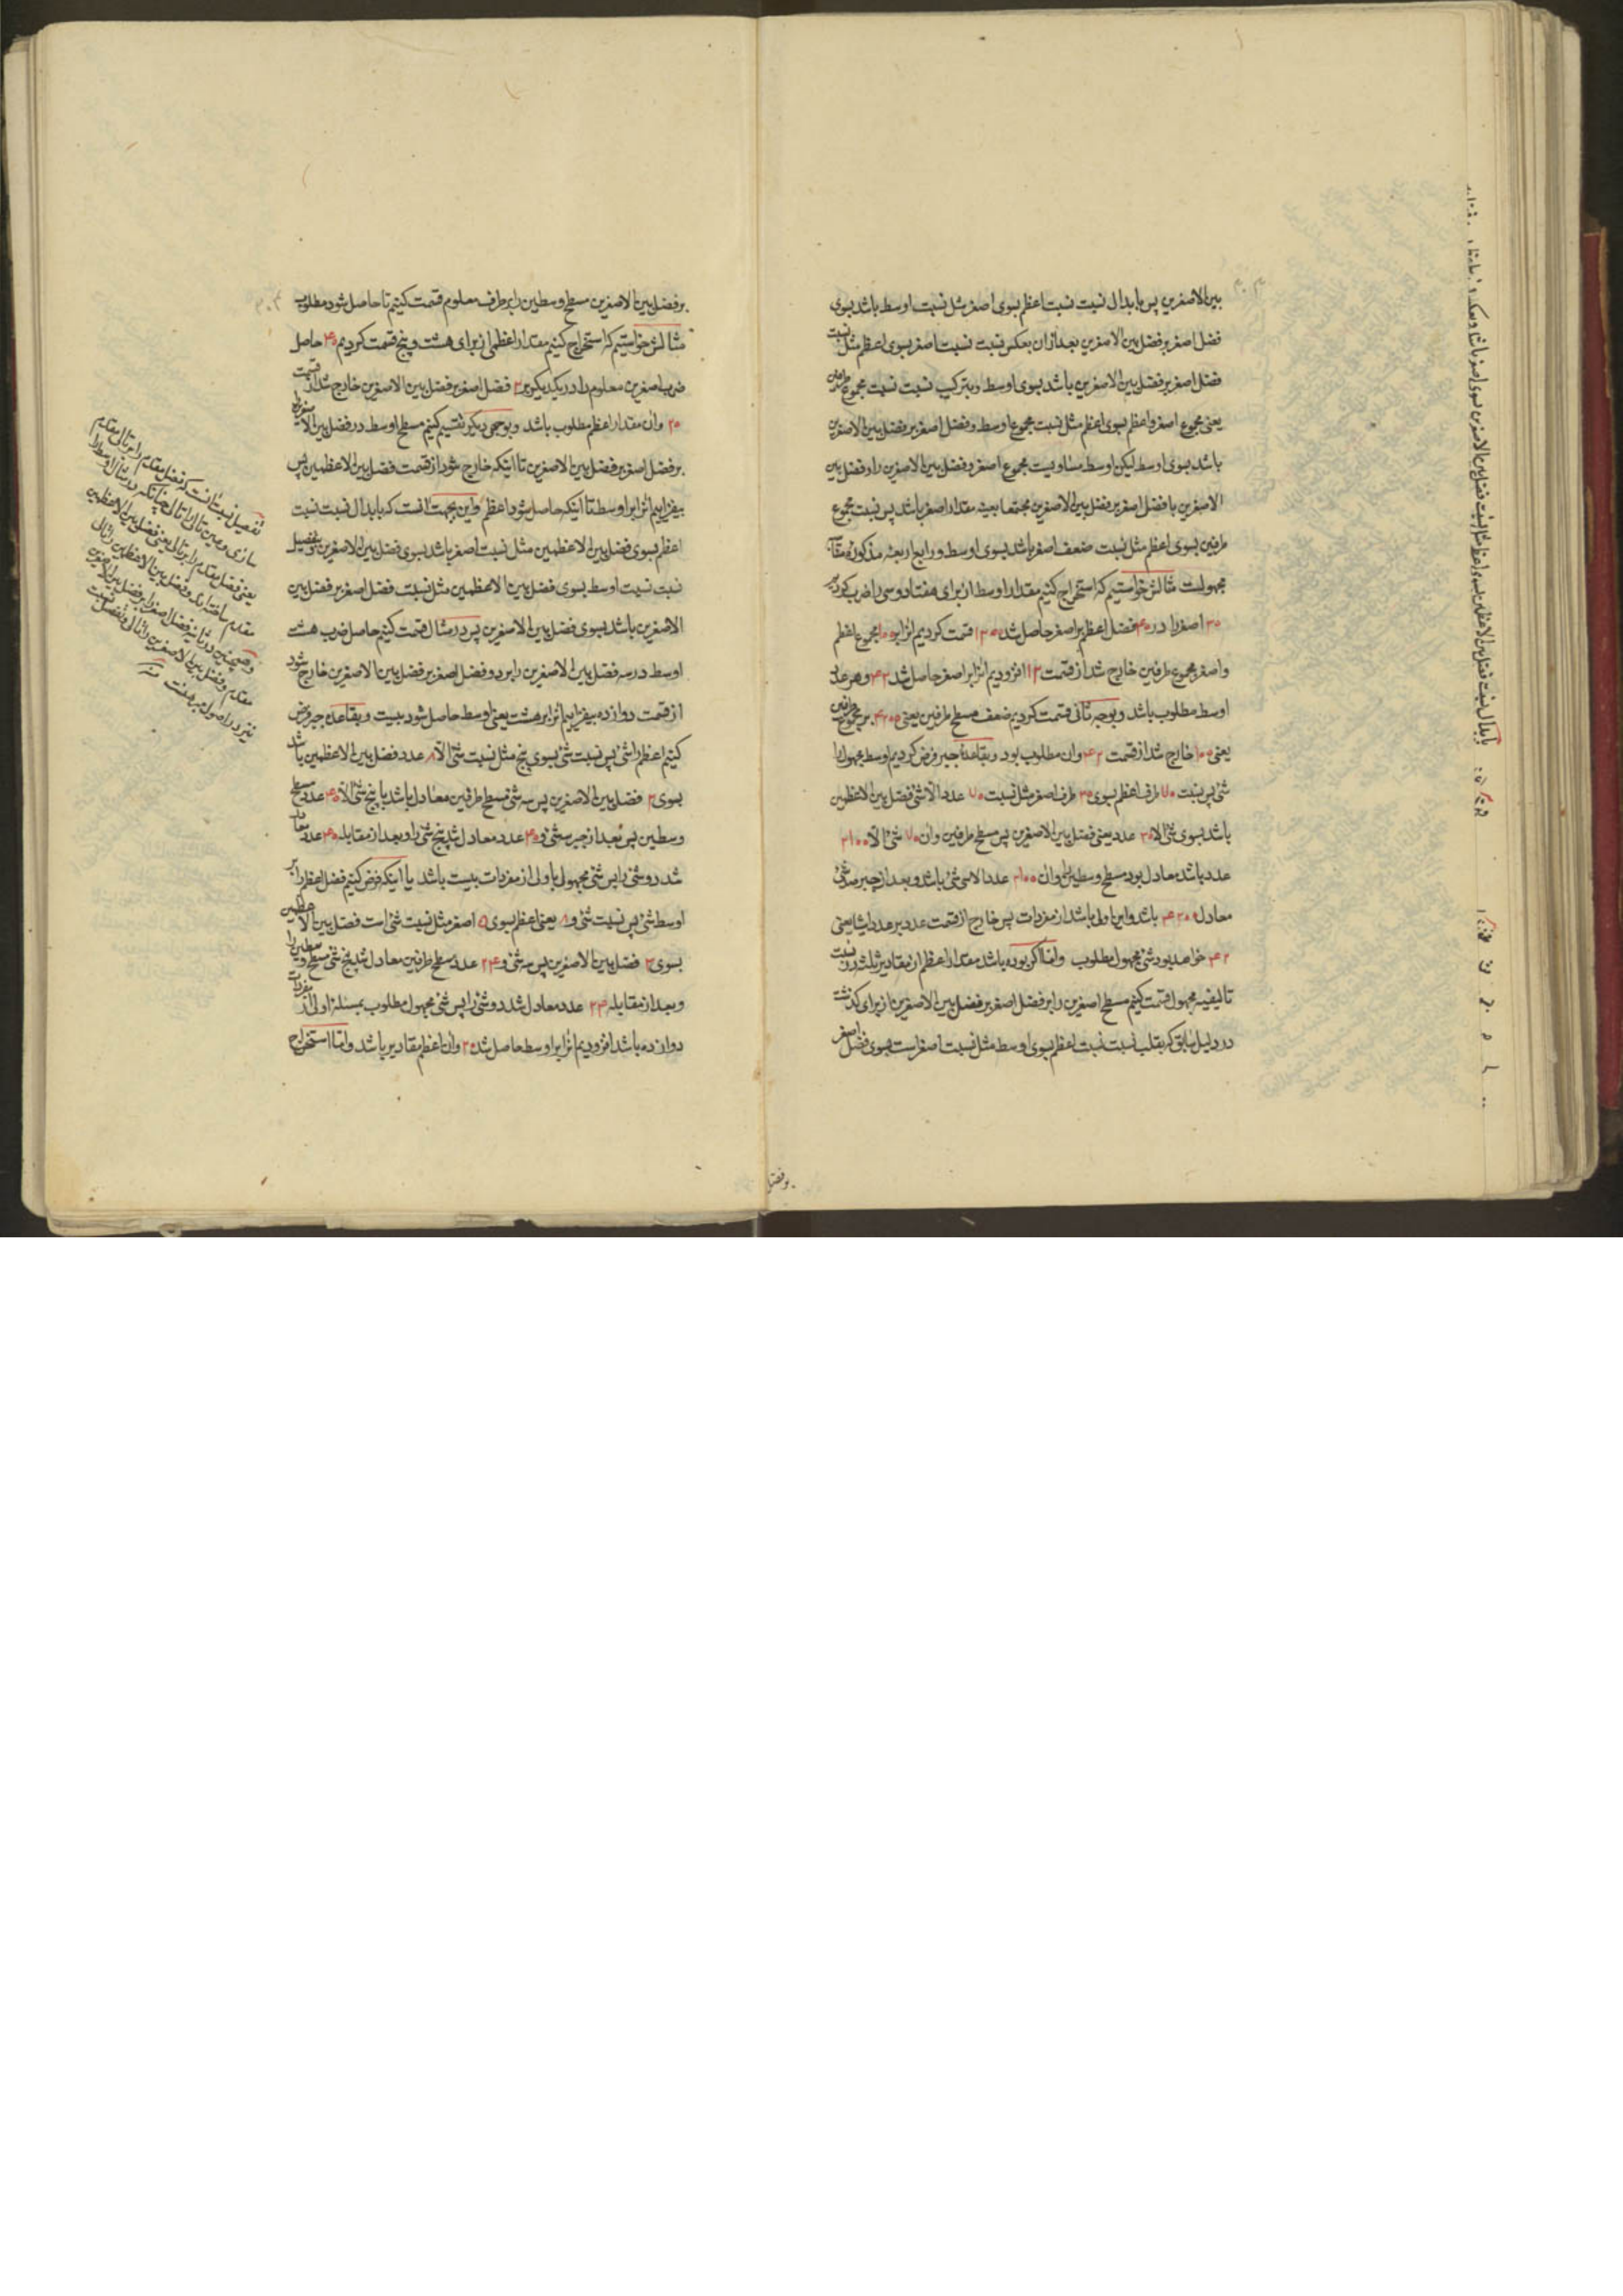 بین الاصغرین پس بابدال نسبت نسبت اعظم بسوی اصغر مثل نسبت اوسط باشد بسوی
فضل اصغر بر فضل بین الاصغرین بعد ازان بعکس نسبت نسبت اصغر بسوی اعظم مثل نسبت
فضل اصغر بر فضل بین الاصغرین باشد بسوی اوسط و بترکیب نسبت نسبت مجموع طرفین
یعنی مجموع اصغر و اعظم بسوی اعظم مثل نسبت مجموع اوسط و فضل اصغر بر فضل بین الاصغرین
باشد بسوی اوسط لیکن اوسط مساویست مجموع اصغر و فضل بین الاصغرین را و فضل بین
الاصغرین با فضل اصغر بر فضل بین الاصغرین مجتمعا بعینه مقدار اصغر باشد پس نسبت مجموع
طرفین بسوی اعظم مثل نسبت ضعف اصغر باشد بسوی اوسط و رابع اربعه مذکوره
مجهولست مثالش خواستیم که استخراج کنیم مقدار اوسط از برای هفتاد و سی را ضرب کردیم
۳۰ اصغر را در ۴۰ فضل اعظم بر اصغر حاصل شد ۱۲۰۰ قسمت کردیم انرا بر ۱۰۰ مجموع اعظم
و اصغر مجموع طرفین خارج شد از قسمت ۱۲ افزودیم انرا بر اصغر حاصل شد ۴۲ و هو عدد
اوسط مطلوب باشد و بوجه ثانی قسمت کردیم ضعف مسطح طرفین یعنی ۴۲۰۰ بر مجموع طرفین
یعنی ۱۰۰ خارج شد از قسمت ۴۲ وان مطلوب بود و بقاعدهٔ جبر فرض کردیم اوسط مجهول را
شئ پس نسبت ۷۰ طرف اعظم بسوی ۳۰ طرف اصغر مثل نسبت ۷۰ عدد الا شئ فضل بین الاعظمین
باشد بسوی شئ الا ۳۰ عدد یعنی فضل بین الاصغرین پس مسطح طرفین وان ۷۰ شئ الا ۲۱۰۰
عدد باشد معادل بود مسطح وسطین را وان ۲۱۰۰ عدد الا سی شئ باشد و بعد از جبر صد شئ
معادل ۴۲۰۰ باشد و این اولی باشد از مفردات پس خارج از قسمت عدد بر عدد اشیا یعنی
۴۲ خواهد بود شئ مجهول مطلوب و اما اگر بوده باشد مقدار اعظم از مقادیر ثلثه در نسبت
تالیفیه مجهول قسمت کنیم مسطح اصغرین را بر فضل اصغر بر فضل بین الاصغرین از برای کذشت
در دلیل سابق که بقلب نسبت نسبت اعظم بسوی اوسط مثل نسبت اصغر است بسوی فضل اصغر
بر فضل
بر فضل بین الاصغرین مسطح وسطین را بر طرف معلوم قسمت کنیم تا حاصل شود مطلوب
مثالش خواستیم که استخراج کنیم مقدار اعظمی از برای هشت و پنج قسمت کردیم ۴۰ حاصل
ضرب اصغرین معلوم را در یکدیکر بر ۲ فضل اصغر بر فضل بین الاصغرین خارج شد از قسمت
۲۰ وان مقدار اعظم مطلوب باشد و بوجهی دیکر تقسیم کنیم مسطح اوسط در فضل بین الاصغرین را
بر فضل اصغر بر فضل بین الاصغرین تا اینکه خارج شود از قسمت فضل بین الاعظمین پس
بیفزاییم انرا بر اوسط تا اینکه حاصل شود اعظم و این بجهت انست که بابدال نسبت نسبت
اعظم بسوی فضل بین الاعظمین مثل نسبت اصغر باشد بسوی فضل بین الاصغرین و بتفصیل
نسبت نسبت اوسط بسوی فضل بین الاعظمین مثل نسبت فضل اصغر بر فضل بین
الاصغرین باشد بسوی فضل بین الاصغرین پس در مثال قسمت کنیم حاصل ضرب هشت
اوسط در سه فضل بین الاصغرین را بر دو فضل اصغر بر فضل بین الاصغرین خارج شود
از قسمت دوازده بیفزاییم انرا بر هشت یعنی اوسط حاصل شود بیست و بقاعده جبر فرض
کنیم اعظم را شئ پس نسبت شئ بسوی پنج مثل نسبت شئ الا ۸ عدد فضل بین الاعظمین باشد
بسوی ۳ فضل بین الاصغرین پس سه شئ مسطح طرفین معادل باشد با پنج شئ الا ۴۰ عدد مسطح
وسطین پس بعد از جبر سه شئ و ۴۰ عدد معادل شد پنج شئ را و بعد از مقابله ۴۰ عدد معادل
شد دو شئ را پس شئ مجهول باولی از مفردات بیست باشد یا اینکه فرض کنیم فضل اعظم را بر
اوسط شئ پس نسبت شئ و ۸ یعنی اعظم بسوی ۵ اصغر مثل نسبت شئ است فضل بین الاعظمین
بسوی ۳ فضل بین الاصغرین پس سه شئ و ۲۴ عدد مسطح طرفین معادل شد پنج شئ مسطح وسطین را
و بعد از مقابله ۲۴ عدد معادل شد دو شئ را پس شئ مجهول مطلوب بمسئله اولی از مفردات
دوازده باشد افزودیم انرا بر اوسط حاصل شد ۲۰ وان اعظم مقادیر باشد و اما استخراج
تفصیل نسبت انست که فضل مقدم را بر تالی مقدم
سازی و عین تالی را تالی چنانکه در مثال اوسط را
یعنی فضل مقدم را بر تالی یعنی فضل بین الاعظمین
مقدم ساخته اند و فضل بین الاعظمین را تالی
و همچنین در ثانیه فضل اصغر را بر فضل بین الاصغرین
مقدم و فضل بین الاصغرین را تالی و تفصیل نسبت